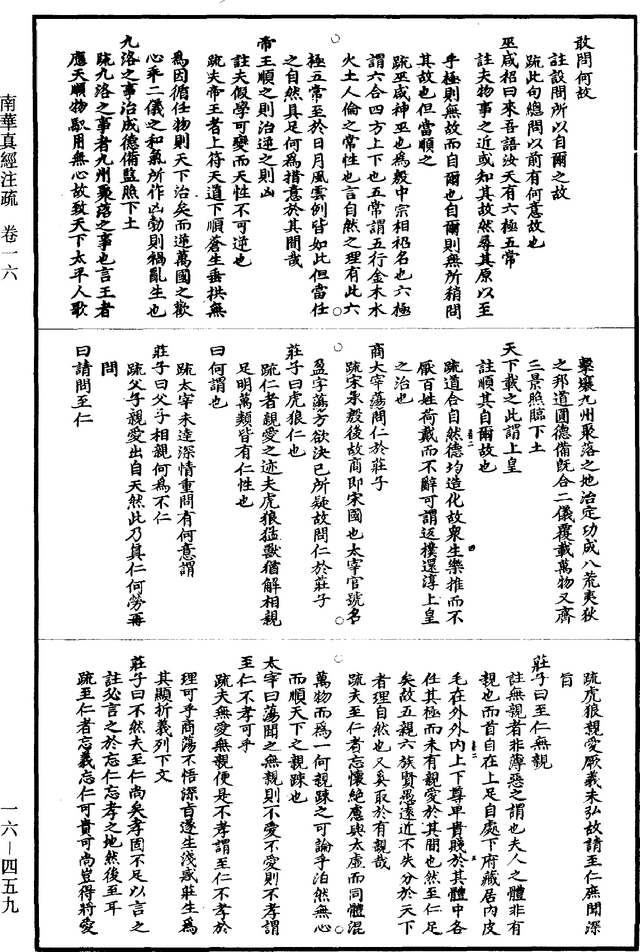 南華真經注疏　卷一六
一六—四五九
敢問何故
註設問所以自爾之故
疏此句總問以前有何意故也
巫咸祒曰來吾語汝天有六極五常
註夫物事之近或知其故然尋其原以至
乎極則無故而自爾也自爾則無所稍問
其故也但當順之
疏巫咸神巫也為殷中宗相祒名也六極
謂六合四方上下也五常謂五行金木水
火土人倫之常性也言自然之理有此六
極五常至於日月風雲例皆如此但當任
之自然具足何為措意於其間哉
帝王順之則治逆之則凶
註夫假學可變而天性不可逆也
疏夫帝王者上符天道下順蒼生垂拱無
為因循任物則天下治矣而逆萬國之歡
心乖二儀之和氣所作凶勃則禍亂生也
九洛之事治成德備監照下土
疏九洛之事者九州聚落之事也言王者
應天順物馭用無心故致天下太平人歌
擊壤九州聚落之地治定功成八荒夷狄
之邦道圓德備既合二儀覆載萬物又齊
三景照臨下土
天下載之此謂上皇
註順其自爾故也
疏道合自然德均造化故衆生樂推而不
厭百姓荷戴而不辭可謂返樸還淳上皇
之治也
商大宰蕩問仁於莊子
疏宋承殷後故商即宋國也太宰官號名
盈字蕩方欲決己所疑故問仁於莊子
莊子曰虎狼仁也
疏仁者親愛之迹夫虎狼猛獸猶解相親
足明萬類皆有仁性也
曰何謂也
疏太宰未達深情重問有何意謂
莊子曰父子相親何為不仁
疏父子親愛出自天然此乃真仁何勞再
問
曰請問至仁
疏虎狼親愛厥義未弘故請至仁庶聞深
旨
莊子曰至仁無親
註無親者非薄惡之謂也夫人之體非有
親也而首自在上足自處下府藏居内皮
毛在外外内上下尊卑貴賤於其體中各
任其極而未有親愛於其間也然至仁足
矣故五親六族賢愚遠近不失分於天下
者理自然也又奚取於有親哉
疏夫至仁者忘懷絶慮與太虛而同體混
萬物而為一何親踈之可論乎泊然無心
而順天下之親踈也
太宰曰蕩聞之無親則不愛不愛則不孝謂
至仁不孝可乎
疏夫無愛無親便是不孝謂至仁不孝於
理可乎商蕩不悟深旨遂生淺惑莊生為
其顯折義列下文
莊子曰不然夫至仁尚矣孝固不足以言之
註必言之於忘仁忘孝之地然後至耳
疏至仁者忘義忘仁可貴可尚豈得將愛